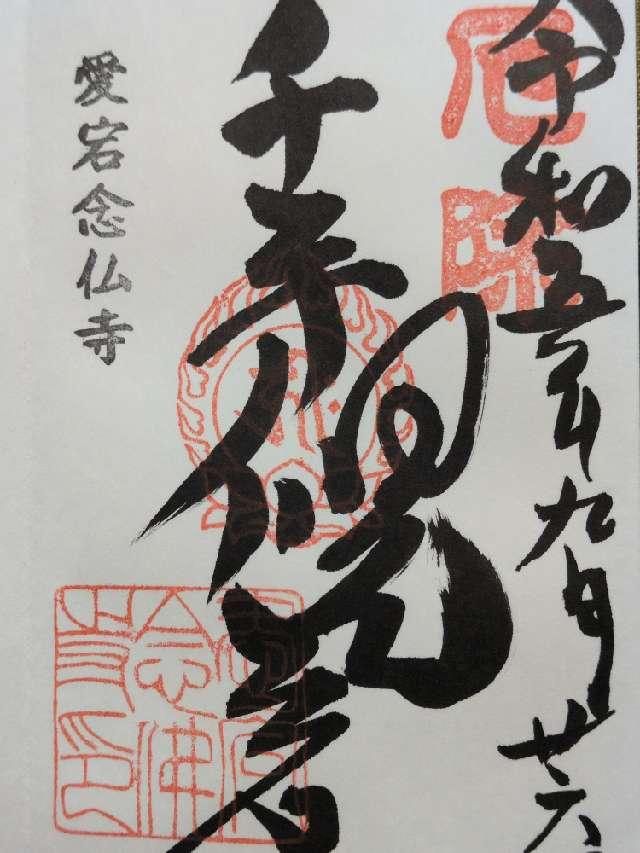 令和五年九月廿六
厄除
千手観音
愛宕念仏寺